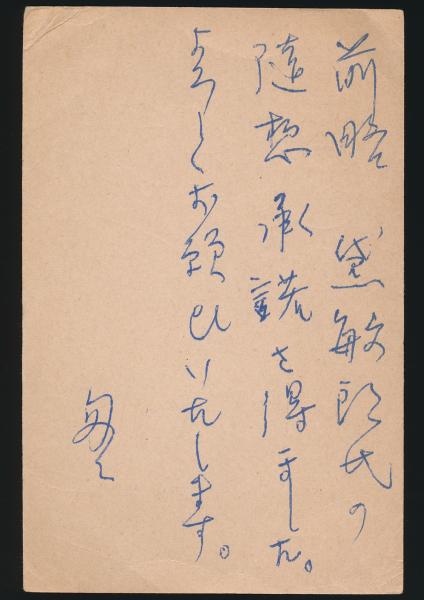 前略 黛敏郎氏の
随想承諾を得ました。
よろしくお願ひいたします。
匆々